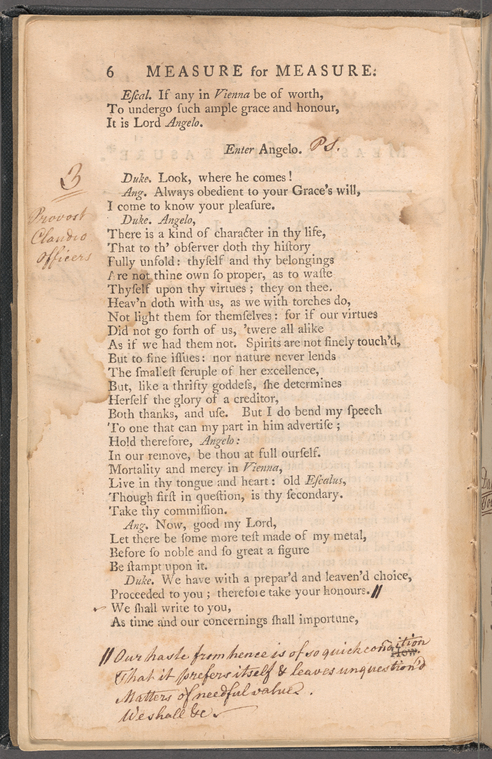 6 MEASURE for MEASURE:
Eſcal. If any in Vienna be of worth,
To undergo ſuch ample grace and honour,
It is Lord Angelo.
Enter Angelo. PS.
Duke. Look, where he comes!
Ang. Always obedient to your Grace's will,
I come to know your pleaſure.
3
Provost
Claudio
Officers
Duke. Angelo,
There is a kind of character in thy life,
That to th' obſerver doth thy hiſtory
Fully unfold: thyſelf and thy belongings
Are not thine own ſo proper, as to waſte
Thyſelf upon thy virtues; they on thee.
Heav'n doth with us, as we with torches do,
Not light them for themſelves: for if our virtues
Did not go forth of us, 'twere all alike
As if we had them not. Spirits are not finely touch'd,
But to fine iſſues: nor nature never lends
The ſmalleſt ſcruple of her excellence,
But, like a thrifty goddeſs, ſhe determines
Herſelf the glory of a creditor,
Both thanks, and uſe. But I do bend my ſpeech
To one that can my part in him advertiſe;
Hold therefore, Angelo:
In our remove, be thou at full ourſelf.
Mortality and mercy in Vienna,
Live in thy tongue and heart: old Eſcalus,
Though firſt in queſtion, is thy ſecondary.
Take thy commiſſion.
Ang. Now, good my Lord,
Let there be ſome more teſt made of my metal,
Before ſo noble and ſo great a figure
Be ſtampt upon it.
Duke. We have with a prepar'd and leaven'd choice,
Proceeded to you; therefore take your honours. //
We ſhall write to you,
As time and our concernings ſhall importune,
How.
// Our haste from hence is of so quick condition
That it prefers itself & leaves unquestion'd
Matters of needful value.
We shall &c